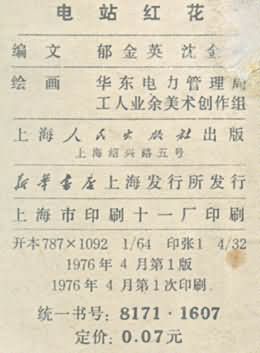 电站红花
编文 郁金英 沈金
绘画 华东电力管理局
工人业余美术创作组
上海人民出版社出版
上海绍兴路五号
新华书店上海发行所发行
上海市印刷十一厂印刷
开本787×1092 1/64 印张1 4/32
1976年4月第1版
1976年4月第1次印刷
统一书号：8171·1607
定价：0.07元